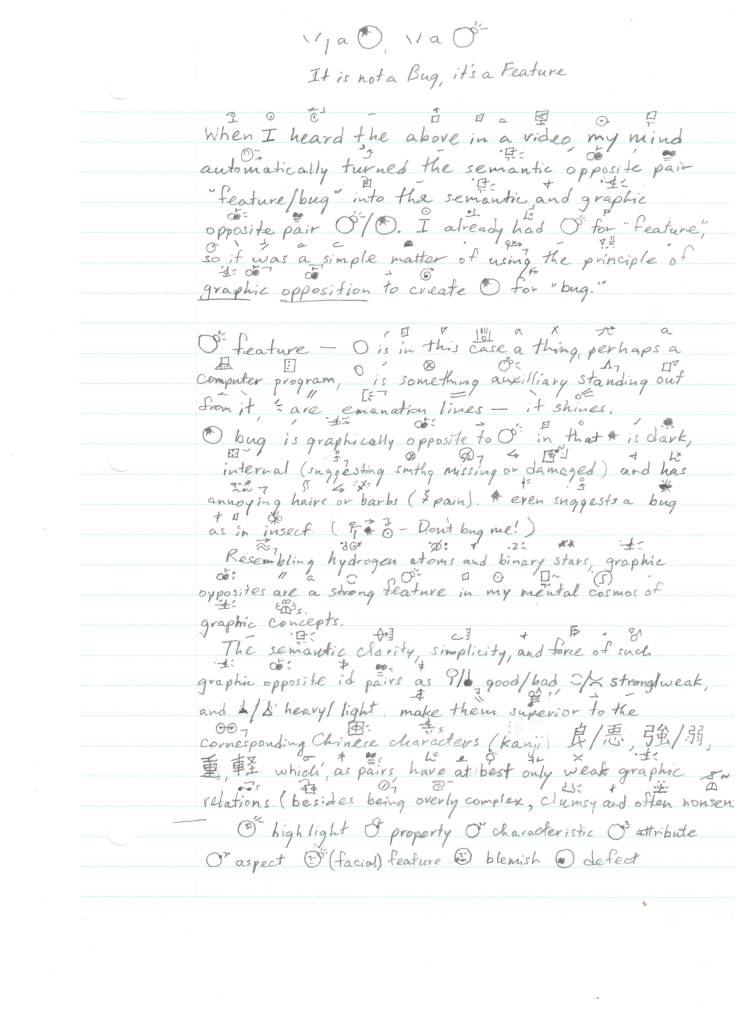 It is not a Bug, it's a Feature
When I heard the above in a video, my mind
automatically turned the semantic opposite pair
"feature/bug" into the semantic and graphic
opposite pair / . I already had for "feature,"
so it was a simple matter of using the principle of
graphic opposition to create for "bug."
feature — is in this case a thing, perhaps a
computer program, is something auxilliary standing out
from it, are emanation lines — it shines.
bug is graphically opposite to in that is dark,
internal (suggesting smthg missing or damaged) and has
annoying hairs or barbs ( pain). even suggests a bug
as in insect. ( – Don't bug me!)
Resembling hydrogen atoms and binary stars, graphic
opposites are a strong feature in my mental cosmos of
graphic concepts.
The semantic clarity, simplicity, and force of such
graphic opposite id pairs as / good/bad, / strong/weak,
and / heavy/light make them superior to the
corresponding Chinese characters (kanji) 良/悪, 強/弱,
重, 軽 which, as pairs, have at best only weak graphic
relations. (besides being overly complex, clumsy and often nonsen
highlight property characteristic attribute
aspect (facial) feature blemish defect